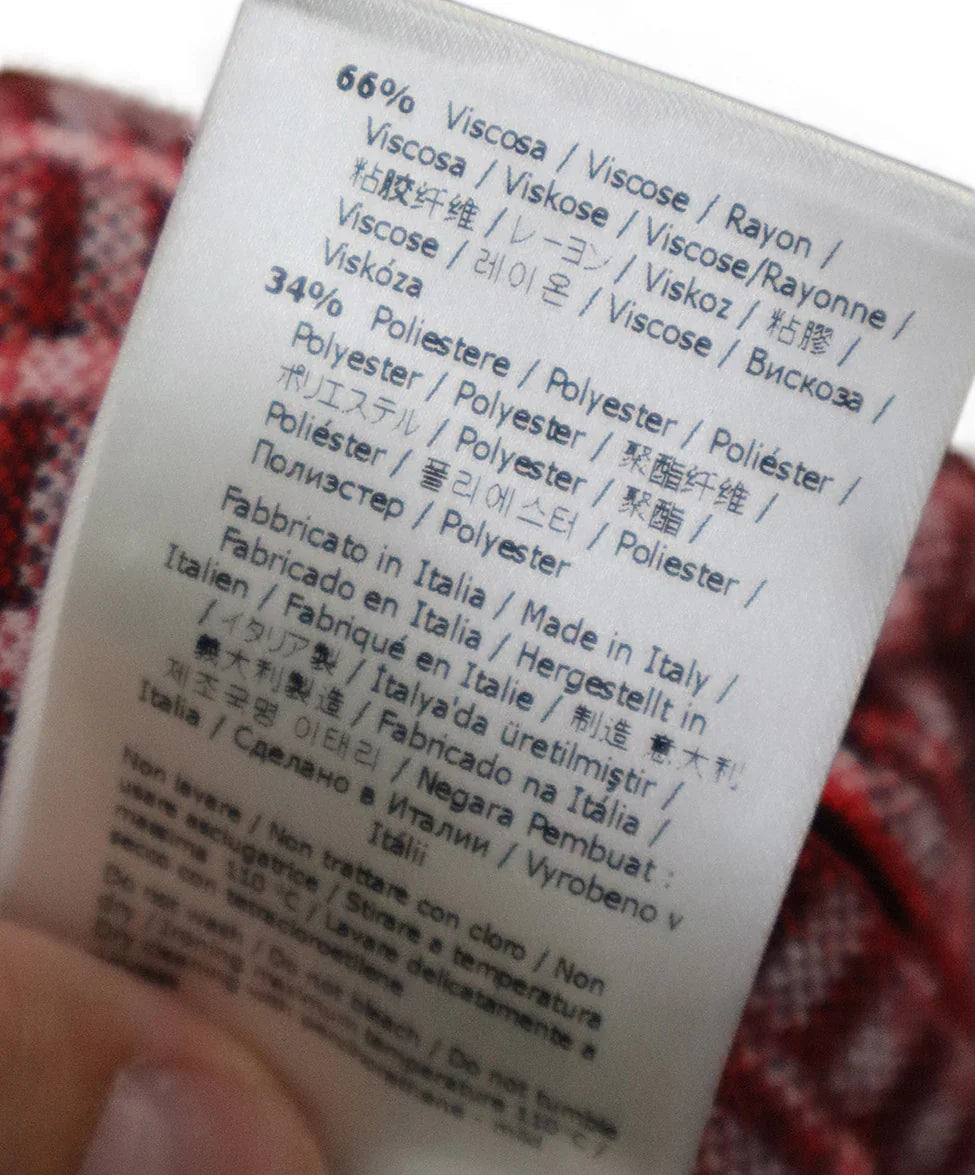 66% Viscosa / Viscose / Rayon /
Viscosa / Viskose / Viscose/Rayonne /
粘胶纤维 / レーヨン / Viskoz / 粘膠 /
Viscose / 레이온 / Viscose / Вискоза /
Viskóza
34% Poliestere / Polyester / Poliéster /
Polyester / Polyester / 聚酯纤维 /
ポリエステル / Polyester / 聚酯 /
Poliéster / 폴리에스터 / Poliester /
Полиэстер / Polyester
Fabbricato in Italia / Made in Italy /
Fabricado en Italia / Hergestellt in
Italien / Fabriqué en Italie / 制造 意大利
/ イタリア製 / Italya'da üretilmiştir /
義大利製造 / Fabricado na Itália /
제조국명 이태리 / Negara Pembuat :
Italia / Сделано в Италии / Vyrobeno v
Itálii
Non lavare / Non trattare con cloro / Non
usare asciugatrice / Stirare a temperatura
massima 110 °C / Lavare delicatamente a
secco con tetracloroetilene
Do not wash / Do not bleach / Do not tumble
dry / Ironing maximum temperature 110 °C /
Dry cleaning